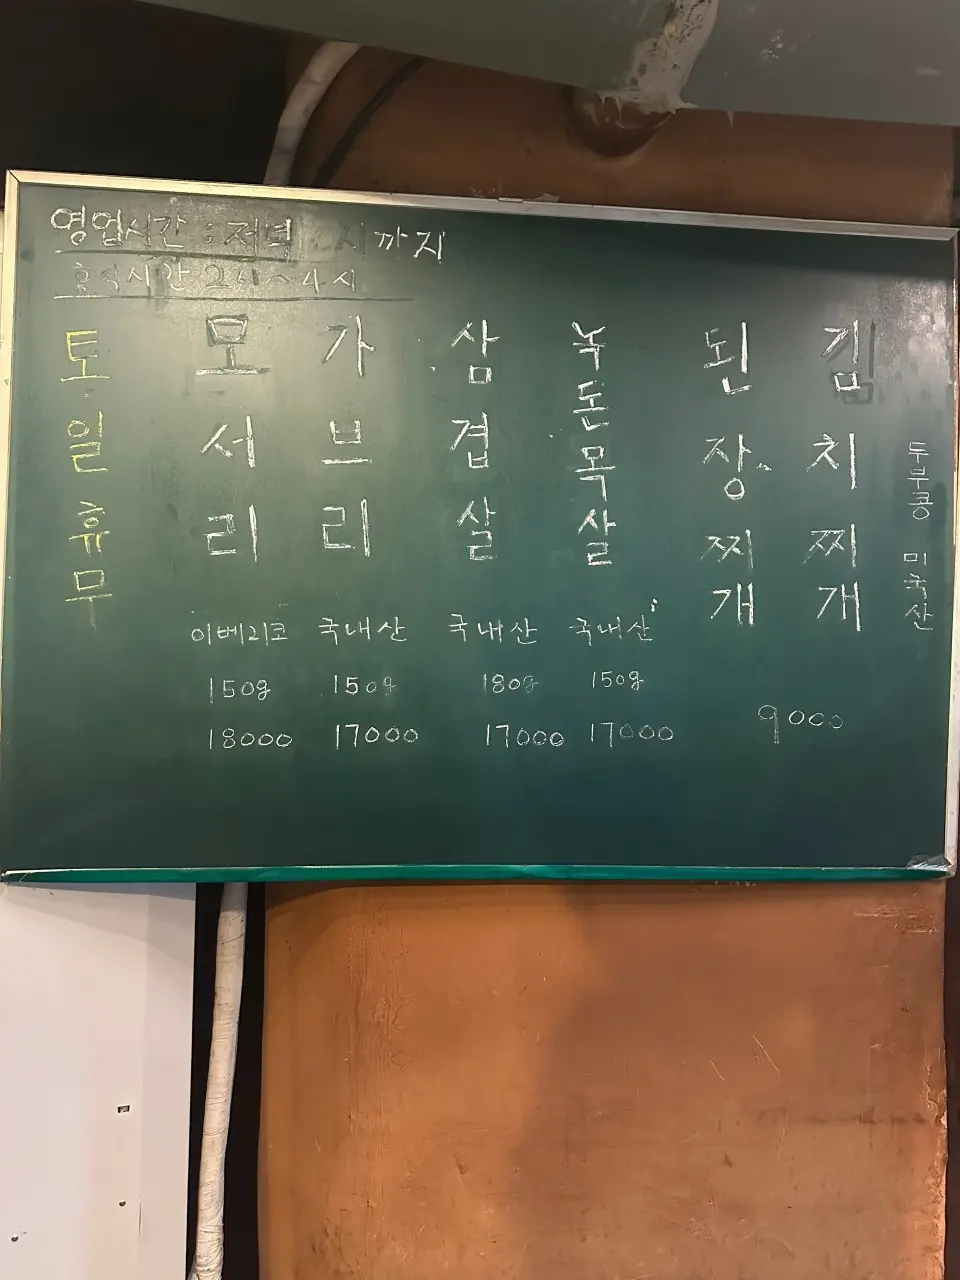 영업시간 : 저녁 시까지
휴식시간 2시~4시
토일휴무
모서리
이베리코
150g
18000
가브리
국내산
150g
17000
삼겹살
국내산
180g
17000
녹돈목살
국내산
150g
17000
된장찌개
김치찌개
9000
두부콩 미국산